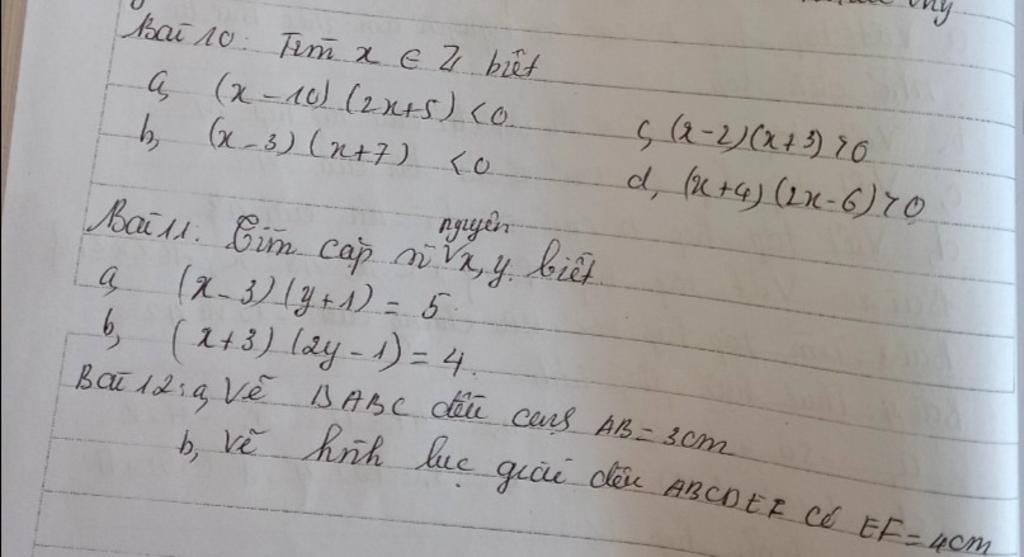 Bài 10: Tìm x ∈ Z biết
a, (x-10)(2x+5) < 0
b, (x-3)(x+7) < 0
c, (x-2)(x+3) > 0
d, (x+4)(2x-6) > 0
Bài 11: Tìm cặp nguyên x, y biết
a, (x-3)(y+1) = 5.
b, (x+3)(2y-1) = 4.
Bài 12: a, Vẽ Δ ABC đều cạnh AB = 3cm
b, Vẽ hình lục giác đều ABCDEF có EF = 4cm